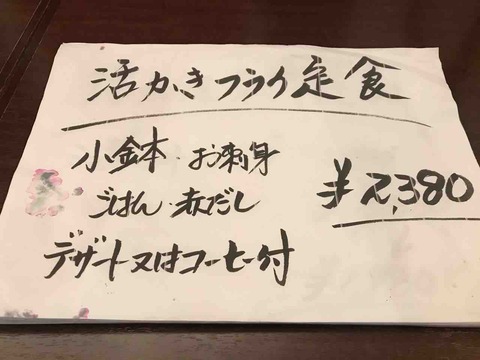 活かきフライ定食
小鉢 お刺身
ごはん 赤だし
¥2,380
デザート又はコーヒー付